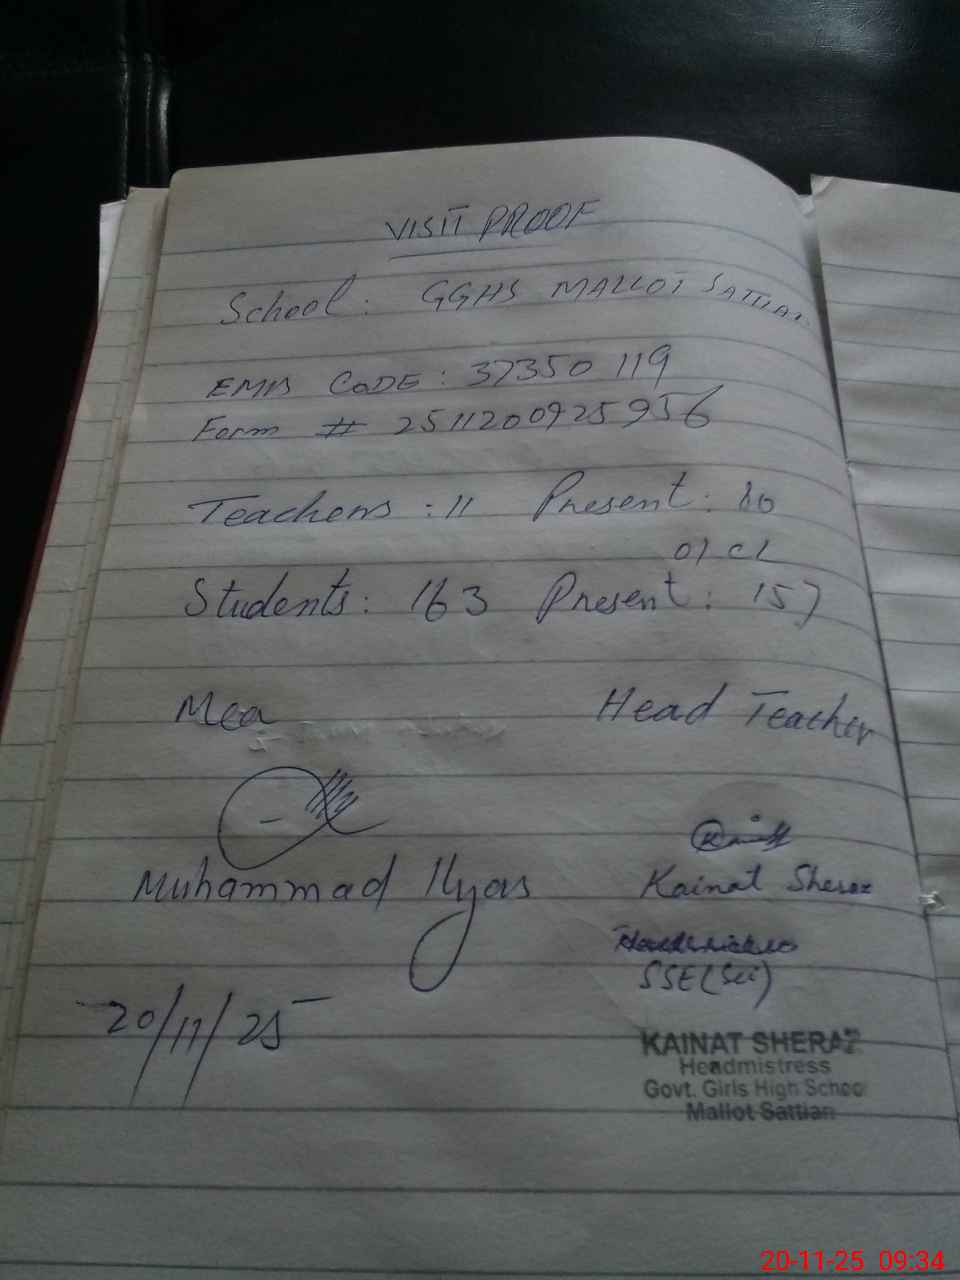 VISIT PROOF
School: GGHS MALLOT SATTIAN
EMIS CODE: 37350119
Form # 2511200925956
Teachers: 11 Present: 10
01 CL
Students: 163 Present: 157
Mea Head Teacher
Muhammad Ilyas Kainat Sheraz
SSE(Sci)
20/11/25
KAINAT SHERAZ
Headmistress
Govt. Girls High School
Mallot Sattian
20-11-25 09:34